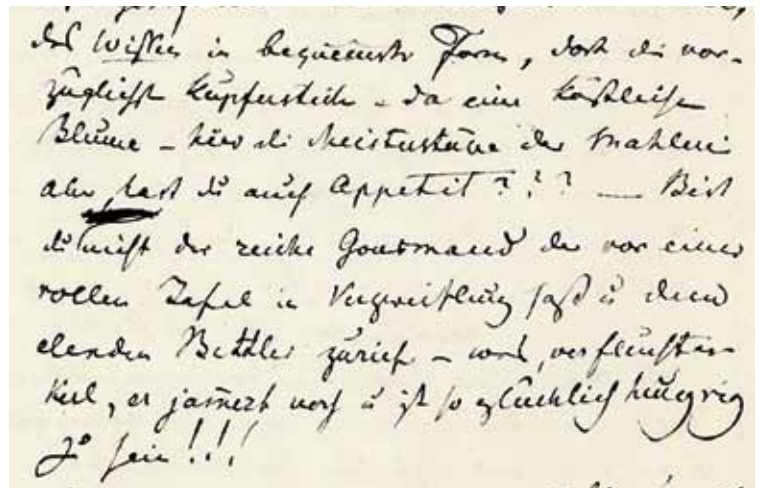 des Wissen in bequemster Form, dort die vor-
züglichst Kupferstiche - da eine köstliche
Blume - hier die Meisterstücke der Mahlerei
aber hast du auch Appetit ? ? ? — Bist
du nicht der reiche Gourmand der vor einer
vollen Tafel in Verzweiflung saß u dem
elenden Bettler zurief - was, verfluchter
Kerl, er jam̄ert noch u ist so glücklich hungrig
zu sein ! ! !